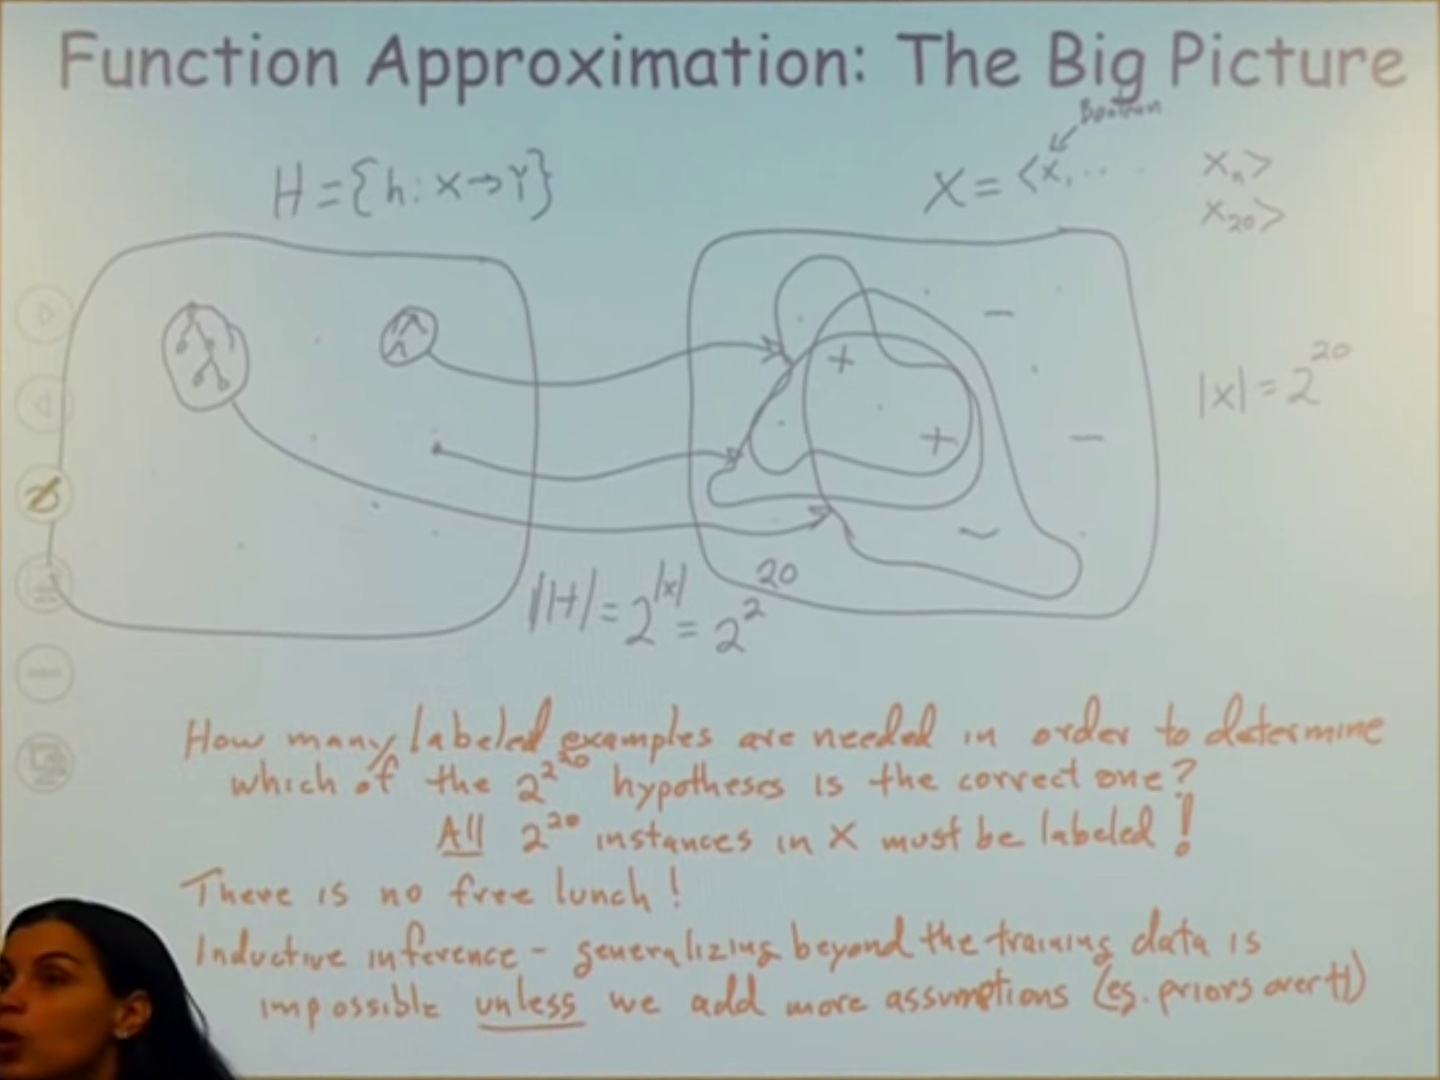 Function Approximation: The Big Picture
Boolean
H = {h: X→Y}
X = <x, ... xₙ>
x₂₀>
+
−
|x| = 2^20
+
−
−
|H| = 2^|x| = 2^2^20
How many labeled examples are needed in order to determine
which of the 2^2^20 hypotheses is the correct one?
All 2^20 instances in X must be labeled!
There is no free lunch!
Inductive inference - generalizing beyond the training data is
impossible unless we add more assumptions (eg. priors over H)